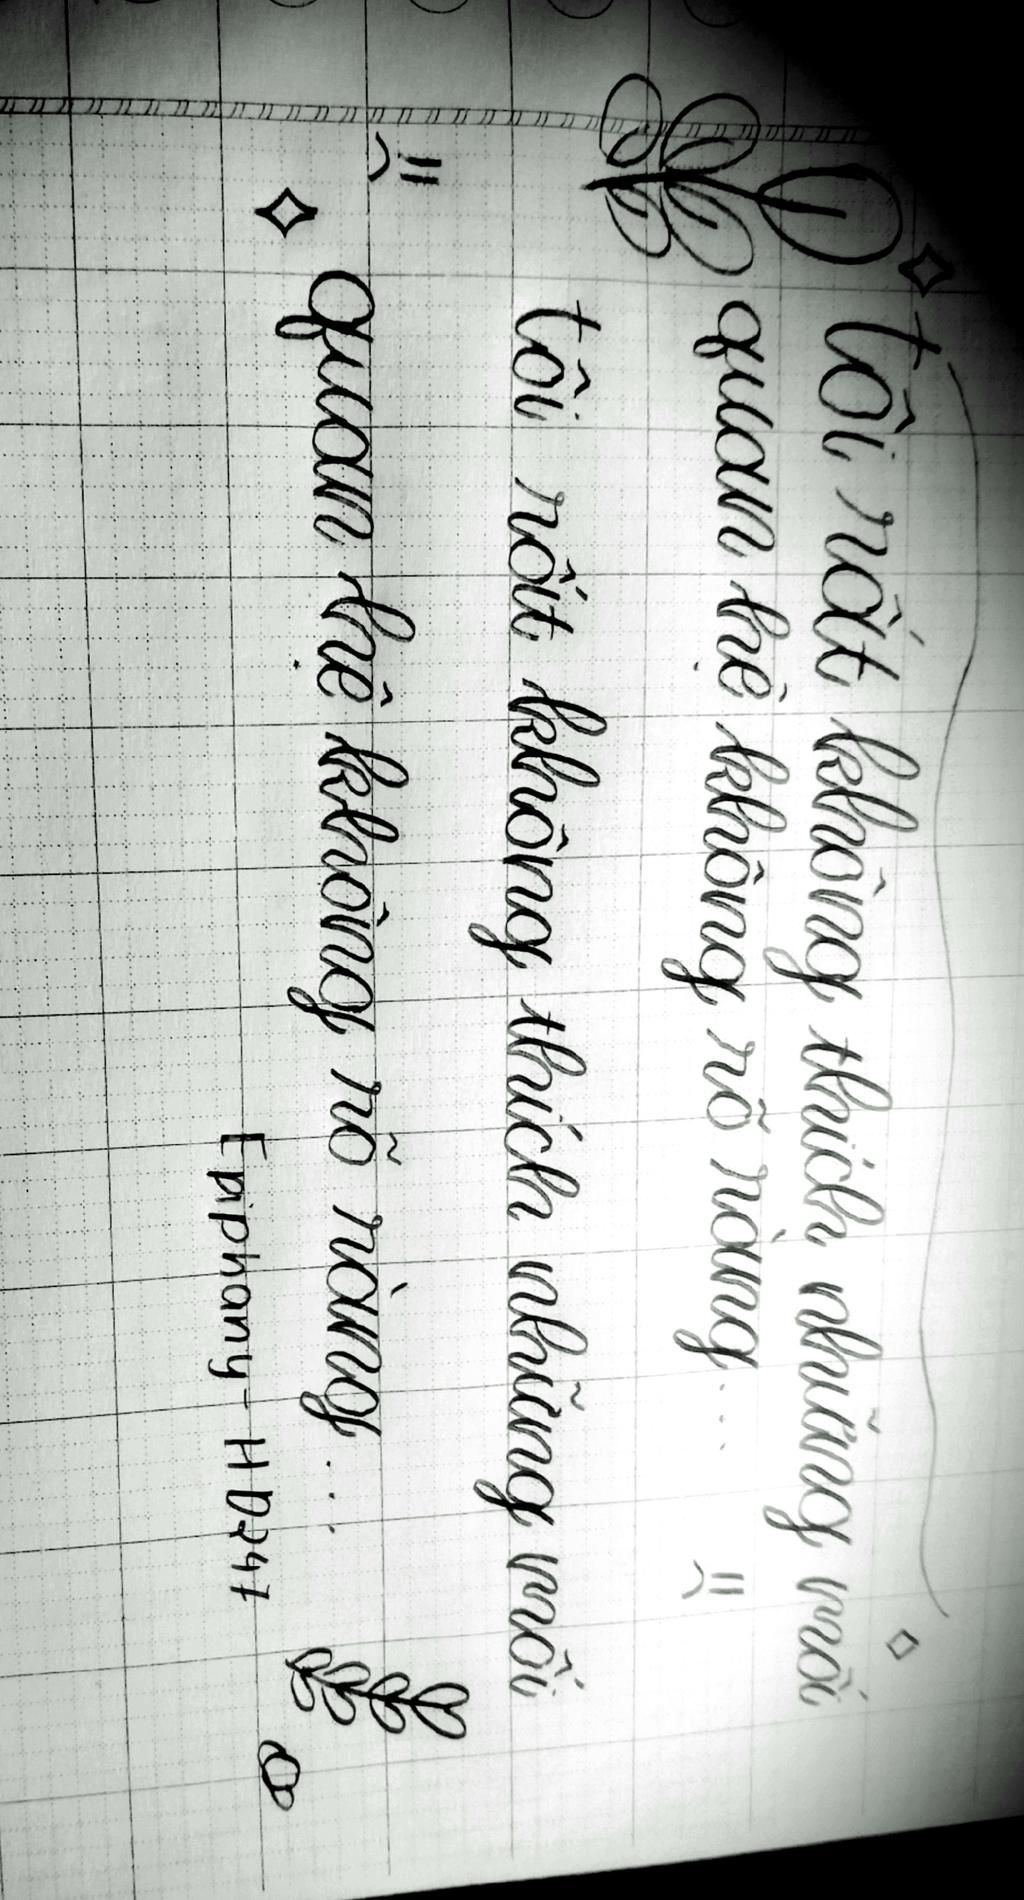 tôi rất không thích những mối
quan hệ không rõ ràng...
tôi rất không thích những mối
quan hệ không rõ ràng...
Epiphany - HD247